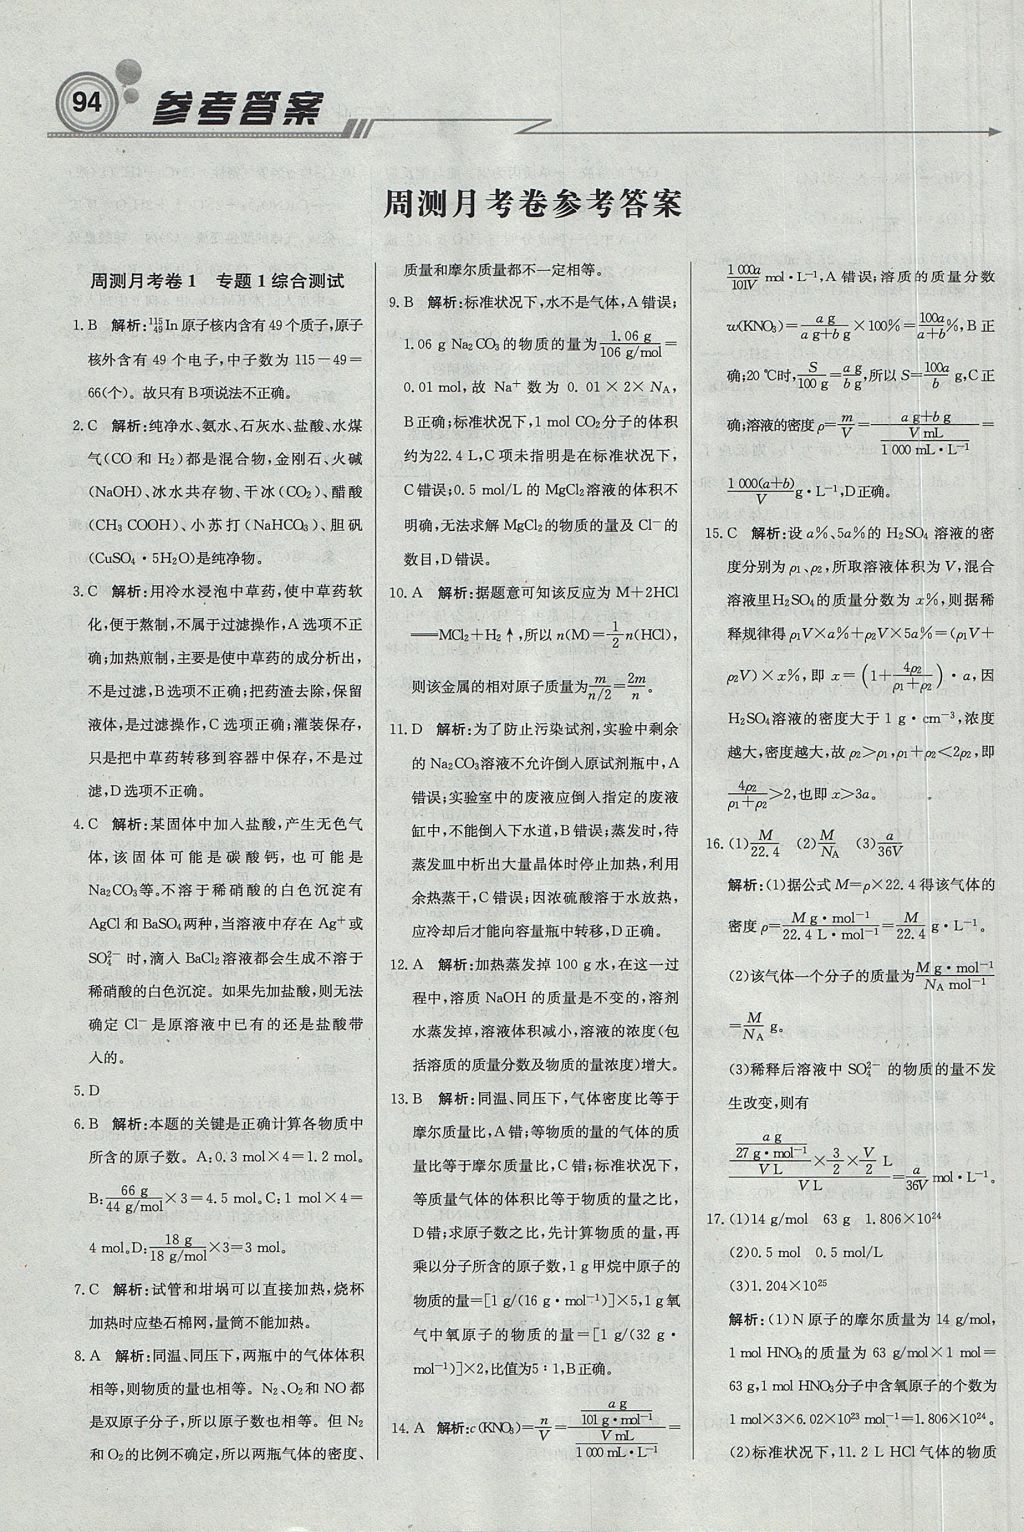 94
参考答案
周测月考卷参考答案
周测月考卷1　专题1综合测试
1. B　解析:¹¹⁵₄₉In原子核内含有49个质子,原子
核外含有49个电子,中子数为115－49＝
66(个)。故只有B项说法不正确。
2. C　解析:纯净水、氨水、石灰水、盐酸、水煤
气(CO和H₂)都是混合物,金刚石、火碱
(NaOH)、冰水共存物、干冰(CO₂)、醋酸
(CH₃COOH)、小苏打(NaHCO₃)、胆矾
(CuSO₄·5H₂O)是纯净物。
3. C　解析:用冷水浸泡中草药,使中草药软
化,便于熬制,不属于过滤操作,A选项不正
确;加热煎制,主要是使中草药的成分析出,
不是过滤,B选项不正确;把药渣去除,保留
液体,是过滤操作,C选项正确;灌装保存,
只是把中草药转移到容器中保存,不是过
滤,D选项不正确。
4. C　解析:某固体中加入盐酸,产生无色气
体,该固体可能是碳酸钙,也可能是
Na₂CO₃等。不溶于稀硝酸的白色沉淀有
AgCl和BaSO₄两种,当溶液中存在Ag⁺或
SO₄²⁻时,滴入BaCl₂溶液都会生成不溶于
稀硝酸的白色沉淀。如果先加盐酸,则无法
确定Cl⁻是原溶液中已有的还是盐酸带
入的。
5. D
6. B　解析:本题的关键是正确计算各物质中
所含的原子数。A:0.3 mol×4＝1.2 mol。
B:66 g/44 g/mol×3＝4.5 mol。C:1 mol×4＝
4 mol。D:18 g/18 g/mol×3＝3 mol。
7. C　解析:试管和坩埚可以直接加热,烧杯
加热时应垫石棉网,量筒不能加热。
8. A　解析:同温、同压下,两瓶中的气体体积
相等,则物质的量也相等。N₂、O₂和NO都
是双原子分子,所以原子数也相等。但N₂
和O₂的比例不确定,所以两瓶气体的密度、
质量和摩尔质量都不一定相等。
9. B　解析:标准状况下,水不是气体,A错误;
1.06 g Na₂CO₃的物质的量为1.06 g/106 g/mol＝
0.01 mol,故Na⁺数为0.01×2×N_A,
B正确;标准状况下,1 mol CO₂分子的体积
约为22.4 L,C项未指明是在标准状况下,
C错误;0.5 mol/L的MgCl₂溶液的体积不
明确,无法求解MgCl₂的物质的量及Cl⁻的
数目,D错误。
10. A　解析:据题意可知该反应为M＋2HCl
══MCl₂＋H₂↑,所以n(M)＝1/2 n(HCl),
则该金属的相对原子质量为m/(n/2)＝2m/n。
11. D　解析:为了防止污染试剂,实验中剩余
的Na₂CO₃溶液不允许倒入原试剂瓶中,A
错误;实验室中的废液应倒入指定的废液
缸中,不能倒入下水道,B错误;蒸发时,待
蒸发皿中析出大量晶体时停止加热,利用
余热蒸干,C错误;因浓硫酸溶于水放热,
应冷却后才能向容量瓶中转移,D正确。
12. A　解析:加热蒸发掉100 g水,在这一过
程中,溶质NaOH的质量是不变的,溶剂
水蒸发掉,溶液体积减小,溶液的浓度(包
括溶质的质量分数及物质的量浓度)增大。
13. B　解析:同温、同压下,气体密度比等于
摩尔质量比,A错;等物质的量的气体的质
量比等于摩尔质量比,C错;标准状况下,
等质量气体的体积比等于物质的量之比,
D错;求原子数之比,先计算物质的量,再
乘以分子所含的原子数,1 g甲烷中原子的
物质的量＝[1 g/(16 g·mol⁻¹)]×5,1 g氧
气中氧原子的物质的量＝[1 g/(32 g·
mol⁻¹)]×2,比值为5∶1,B正确。
14. A　解析:c(KNO₃)＝n/V＝(a g/101 g·mol⁻¹)/(V mL/1 000 mL·L⁻¹)＝
1 000a/101V mol·L⁻¹,A错误;溶质的质量分数
w(KNO₃)＝a g/(a g＋b g)×100%＝100a/(a＋b)%,B正
确;20 ℃时,S/100 g＝a g/b g,所以S＝100a/b g,C正
确;溶液的密度ρ＝m/V＝(a g＋b g)/(V mL/1 000 mL·L⁻¹)＝
1 000(a＋b)/V g·L⁻¹,D正确。
15. C　解析:设a%、5a%的H₂SO₄溶液的密
度分别为ρ₁、ρ₂,所取溶液体积为V,混合
溶液里H₂SO₄的质量分数为x%,则据稀
释规律得ρ₁V×a%＋ρ₂V×5a%＝(ρ₁V＋
ρ₂V)×x%,即x＝(1＋4ρ₂/(ρ₁＋ρ₂))·a,因
H₂SO₄溶液的密度大于1 g·cm⁻³,浓度
越大,密度越大,故ρ₂>ρ₁,ρ₁＋ρ₂<2ρ₂,即
4ρ₂/(ρ₁＋ρ₂)>2,也即x>3a。
16. (1)M/22.4　(2)M/N_A　(3)a/36V
解析:(1)据公式M＝ρ×22.4得该气体的
密度ρ＝M g·mol⁻¹/22.4 L·mol⁻¹＝M/22.4 g·L⁻¹。
(2)该气体一个分子的质量为M g·mol⁻¹/N_A mol⁻¹
＝M/N_A g。
(3)稀释后溶液中SO₄²⁻的物质的量不发
生改变,则有
((a g/27 g·mol⁻¹)/V L×3/2×V/2 L)/V L＝a/36V mol·L⁻¹。
17. (1)14 g/mol　63 g　1.806×10²⁴
(2)0.5 mol　0.5 mol/L
(3)1.204×10²⁵
解析:(1)N原子的摩尔质量为14 g/mol,
1 mol HNO₃的质量为63 g/mol×1 mol＝
63 g,1 mol HNO₃分子中含氧原子的个数为
1 mol×3×6.02×10²³ mol⁻¹＝1.806×10²⁴。
(2)标准状况下,11.2 L HCl气体的物质